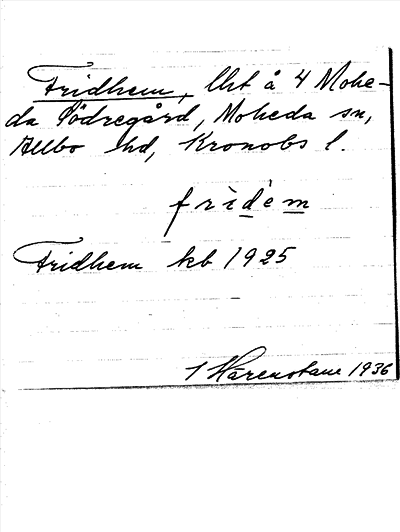 Fridhem, lht å 4 Mohe-
da Södregård, Moheda sn,
Allbo hd, Kronobs l.
frìdèm
Fridhem kb 1925
1936